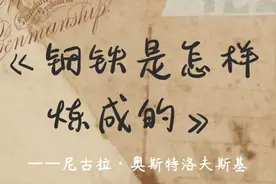 Penmanship.
《钢铁是怎样
炼成的》
——尼古拉·奥斯特洛夫斯基